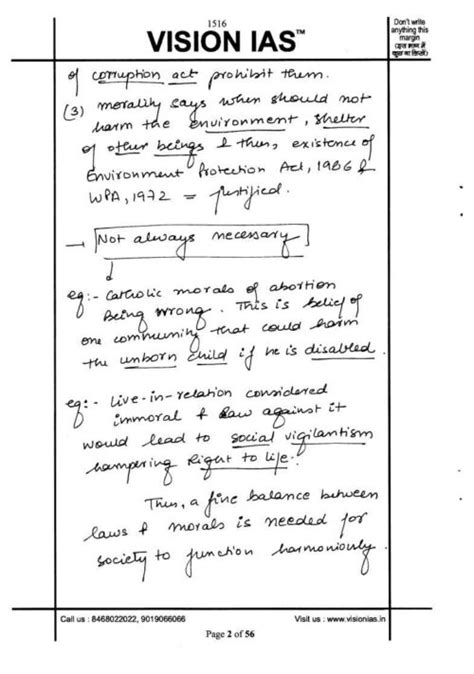 1516
VISION IAS™
Don't write
anything this
margin
(इस भाग में
कुछ ना लिखें)
of corruption act prohibit them.
(3) morality says when should not
harm the environment, shelter
of other beings & thus, existence of
Environment Protection Act, 1986 &
WPA, 1972 = justified.
→ Not always necessary
eg:- Catholic morals of abortion
Being wrong. This is belief of
one community that could harm
the unborn child if he is disabled.
eg:- Live-in-relation considered
immoral & law against it
would lead to social vigilantism
hampering Right to life.
Thus, a fine balance between
laws & morals is needed for
society to function harmoniously.
Call us : 8468022022, 9019066066
Visit us : www.visionias.in
Page 2 of 56